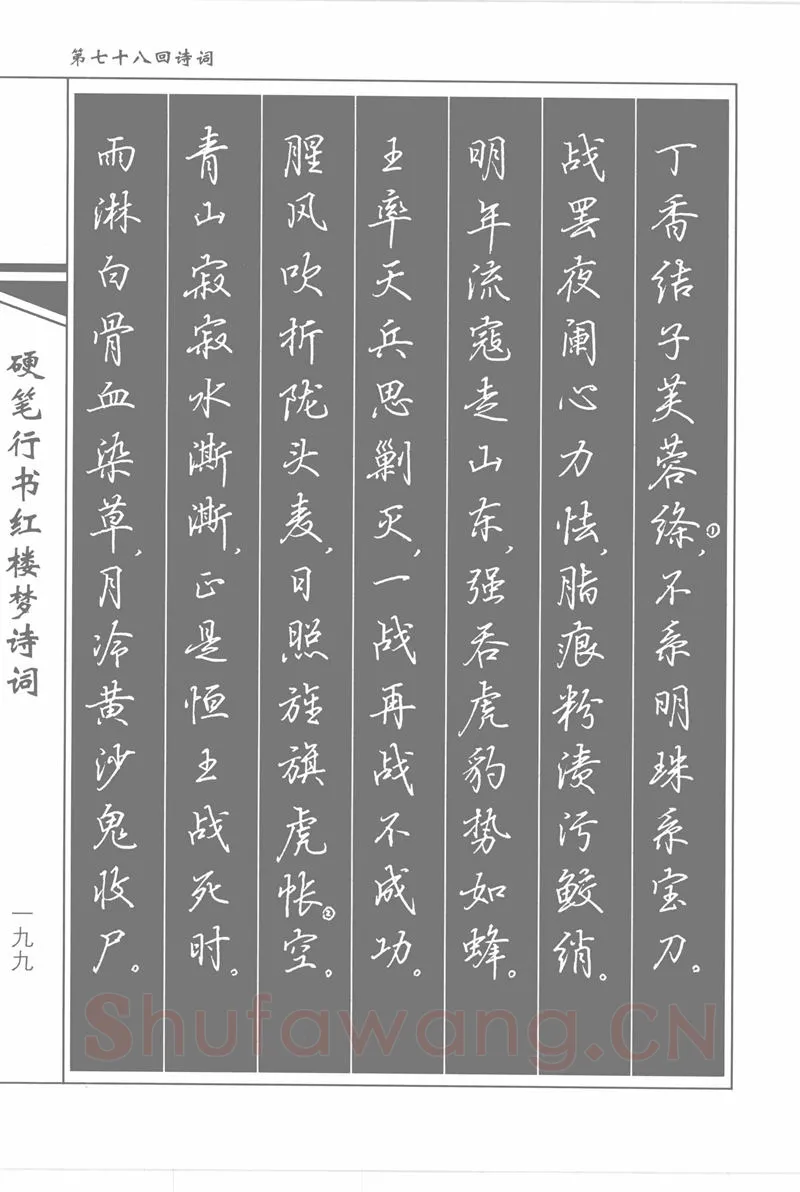 第七十八回诗词
丁香结子芙蓉绦,①不系明珠系宝刀。
战罢夜阑心力怯,脂痕粉渍污鲛绡。
明年流寇走山东,强吞虎豹势如蜂。
王率天兵思剿灭,一战再战不成功。
腥风吹折陇头麦,日照旌旗虎帐②空。
青山寂寂水澌澌,正是恒王战死时。
雨淋白骨血染草,月冷黄沙鬼收尸。
硬笔行书红楼梦诗词
一九九
Shufawang.CN